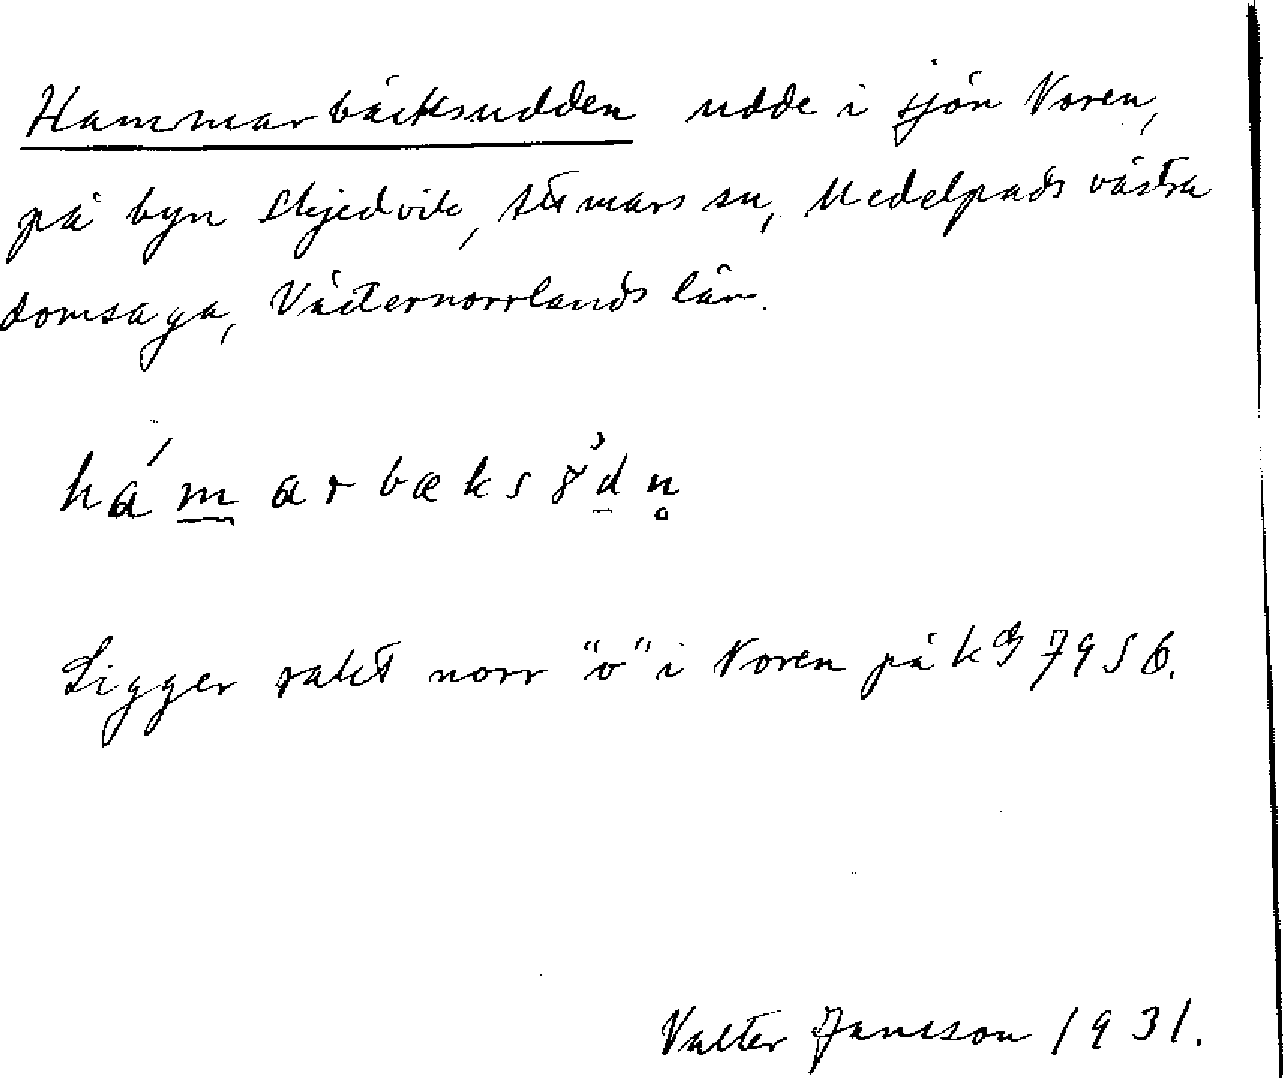 Hammarbäcksudden udde i sjön Noren,
på byn Skjedvik, Attmars sn, Medelpads västra
domsaga, Västernorrlands län.
hámarbæks
Ligger rakt norr "o" i Noren på kg 7956.
Valter Jansson 1931.